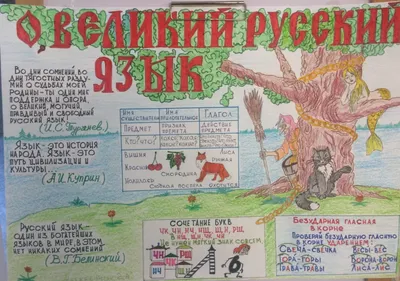 О, ВЕЛИКИЙ РУССКИЙ
ЯЗЫК
Во дни сомнений, во
дни тягостных разду-
мий о судьбах моей
родины-ты один мне
поддержка и опора,
о великий, могучий,
правдивый и свободный
русский язык!
(И.С. Тургенев.)
Язык - это история
народа. Язык - это
путь цивилизации и
культуры.
(А.И. Куприн)
Русский язык-
один из богатейших
языков в мире, в этом
нет никаких сомнений.
(В.Г. Белинский)
Имя существительное
Имя прилагательное
Глагол
Предмет
Признак предмета
Действие предмета
Кто? Что?
Вишня
Красная
Смородина
Лиса
Рыжая
СОЧЕТАНИЕ БУКВ
ЧК, ЧН, НЧ, НЩ, ЩН, РЩ
БЕЗУДАРНАЯ ГЛАСНАЯ
В КОРНЕ
Проверяй безударную гласную
в корне ударением:
Свеча-свечка
Гора-горы
Трава-травы
Весы-вес
Ворона-ворон
Лиса-лис